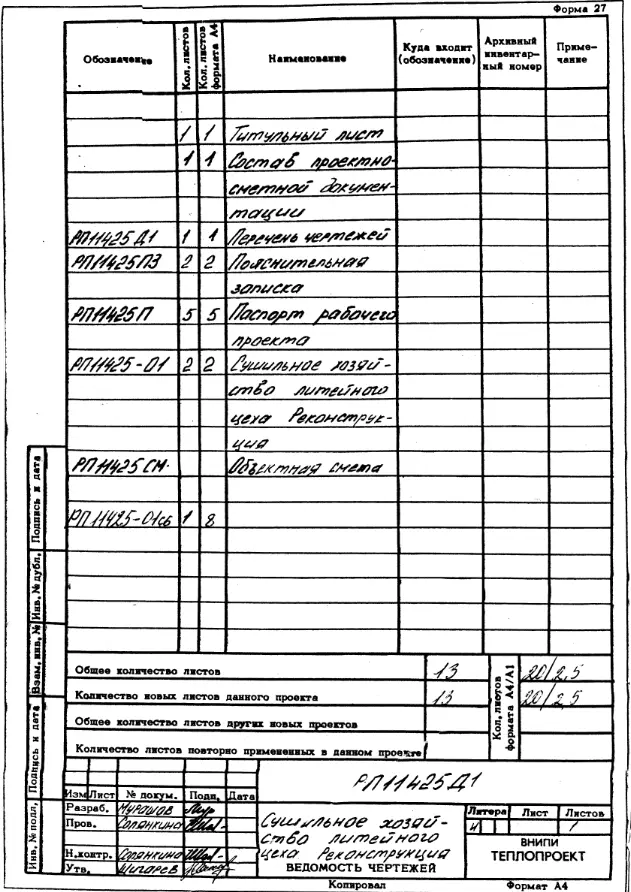 Форма 27
Обозначение
Кол. листов
Кол. листов формата А4
Наименование
Куда входит (обозначение)
Архивный инвентар-
ный номер
Приме-
чание
1 1 Титульный лист
1 1 Состав проектно-
сметной докумен-
тации
РП11425Д1 1 1 Перечень чертежей
РП11425ПЗ 2 2 Пояснительная
записка
РП11425П 5 5 Паспорт рабочего
проекта
РП11425-01 2 2 Сушильное хозяй-
ство литейного
цеха Реконструк-
ция
РП11425СМ. Объектная смета
РП11425-01сб 1 8
Общее количество листов 13 20/2,5
Количество новых листов данного проекта 13 20/2,5
Общее количество листов других новых проектов
Количество листов повторно примененных в данном проекте
Кол. листов формата А4/А1
Подпись и дата
Инв. № дубл.
Взам. инв. №
Подпись и дата
Инв. № подл.
РП11425Д1
Изм Лист № докум. Подп. Дата
Разраб. Мурашов
Пров. Солянкина
Н.контр. Солянкина
Утв.
Сушильное хозяй-
ство литейного
цеха Реконструкция
ВЕДОМОСТЬ ЧЕРТЕЖЕЙ
Литера Лист Листов
1
ВНИПИ
ТЕПЛОПРОЕКТ
Копировал Формат А4